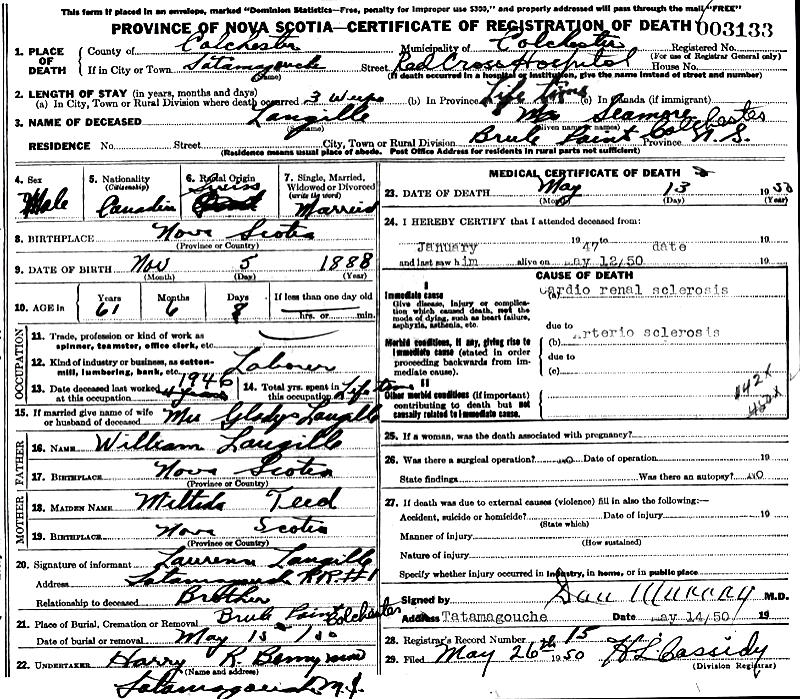 This form if placed in an envelope, marked "Dominion Statistics—Free, penalty for improper use $300," and properly addressed will pass through the mail "FREE"
PROVINCE OF NOVA SCOTIA—CERTIFICATE OF REGISTRATION OF DEATH 003133
1. PLACE OF DEATH County of Colchester Municipality of Colchester Registered No.
(For use of Registrar General only)
If in City or Town Tatamagouche Street Red Cross Hospital House No.
(If death occurred in a hospital or institution, give the name instead of street and number)
2. LENGTH OF STAY (in years, months and days)
(a) In City, Town or Rural Division where death occurred 3 Weeks (b) In Province Life Time (c) In Canada (if immigrant)
3. NAME OF DECEASED Langille Seamore
(Surname) (Given name or names)
RESIDENCE No. Street City, Town or Rural Division Brule Point Colchester Province N.S.
(Residence means usual place of abode. Post Office Address for residents in rural parts not sufficient)
4. Sex Male
5. Nationality (Citizenship) Canadian
6. Racial Origin Swiss
7. Single, Married, Widowed or Divorced (write the word) Married
8. BIRTHPLACE Nova Scotia
(Province or Country)
9. DATE OF BIRTH Nov 5 1888
(Month) (Day) (Year)
10. AGE IN Years Months Days If less than one day old
61 6 8 hrs. or min.
OCCUPATION
11. Trade, profession or kind of work as spinner, teamster, office clerk, etc.
12. Kind of industry or business, as cotton-mill, lumbering, bank, etc. Laborer
13. Date deceased last worked at this occupation 1946 4 years
14. Total yrs. spent in this occupation Life time
15. If married give name of wife or husband of deceased Mrs Gladys Langille
FATHER
16. NAME William Langille
17. BIRTHPLACE Nova Scotia
(Province or Country)
MOTHER
18. MAIDEN NAME Teed
19. BIRTHPLACE Nova Scotia
(Province or Country)
20. Signature of informant Langille
Address Tatamagouche RR#1
Relationship to deceased Brother
21. Place of Burial, Cremation or Removal Brule Point Colchester
Date of burial or removal May 15
22. UNDERTAKER Harry R.
(Name and address)
Tatamagouche
MEDICAL CERTIFICATE OF DEATH
23. DATE OF DEATH May 13 1950
(Month) (Day) (Year)
24. I HEREBY CERTIFY that I attended deceased from:
January 1947 to date 19
and last saw him alive on May 12/50 19
CAUSE OF DEATH
I
Immediate cause (a) Cardio renal sclerosis
Give disease, injury or complication which caused death, not the mode of dying, such as heart failure, asphyxia, asthenia, etc.
due to
Morbid conditions, if any, giving rise to immediate cause (stated in order proceeding backwards from immediate cause). (b) Arterio sclerosis
due to
(c)
II
Other morbid conditions (if important) contributing to death but not causally related to immediate cause.
442X
25. If a woman, was the death associated with pregnancy?
26. Was there a surgical operation? NO Date of operation 19
State findings Was there an autopsy? NO
27. If death was due to external causes (violence) fill in also the following:—
Accident, suicide or homicide? Date of injury 19
(State which)
Manner of injury
(How sustained)
Nature of injury
Specify whether injury occurred in industry, in home, or in public place
Signed by Dan Murray M.D.
Address Tatamagouche Date May 14/50 19
28. Registrar's Record Number 15
29. Filed May 26th 1950 H L Cassidy
(Division Registrar)